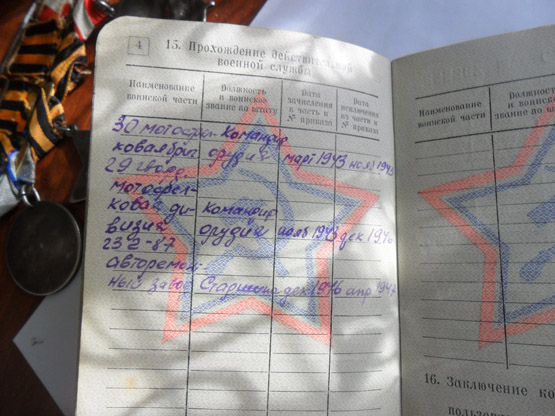 4
15. Прохождение действительной
военной службы
Наименование
воинской части
Должность
и воинское
звание по штату
Дата
зачисления
в часть и
№ приказа
Дата
исключения
из части и
№ приказа
30 мотострел- командир
ковая бриг. орудия март 1943 нояб 1943
29 гвард.
мотострел-
ковая ди- командир
визия орудия нояб 1943 дек 1946
232-87
авторемонт-
ный завод Старшина дек 1946 апр 1947
Наименование
воинской части
Должность
и воинское
звание по шт
16. Заключение ко